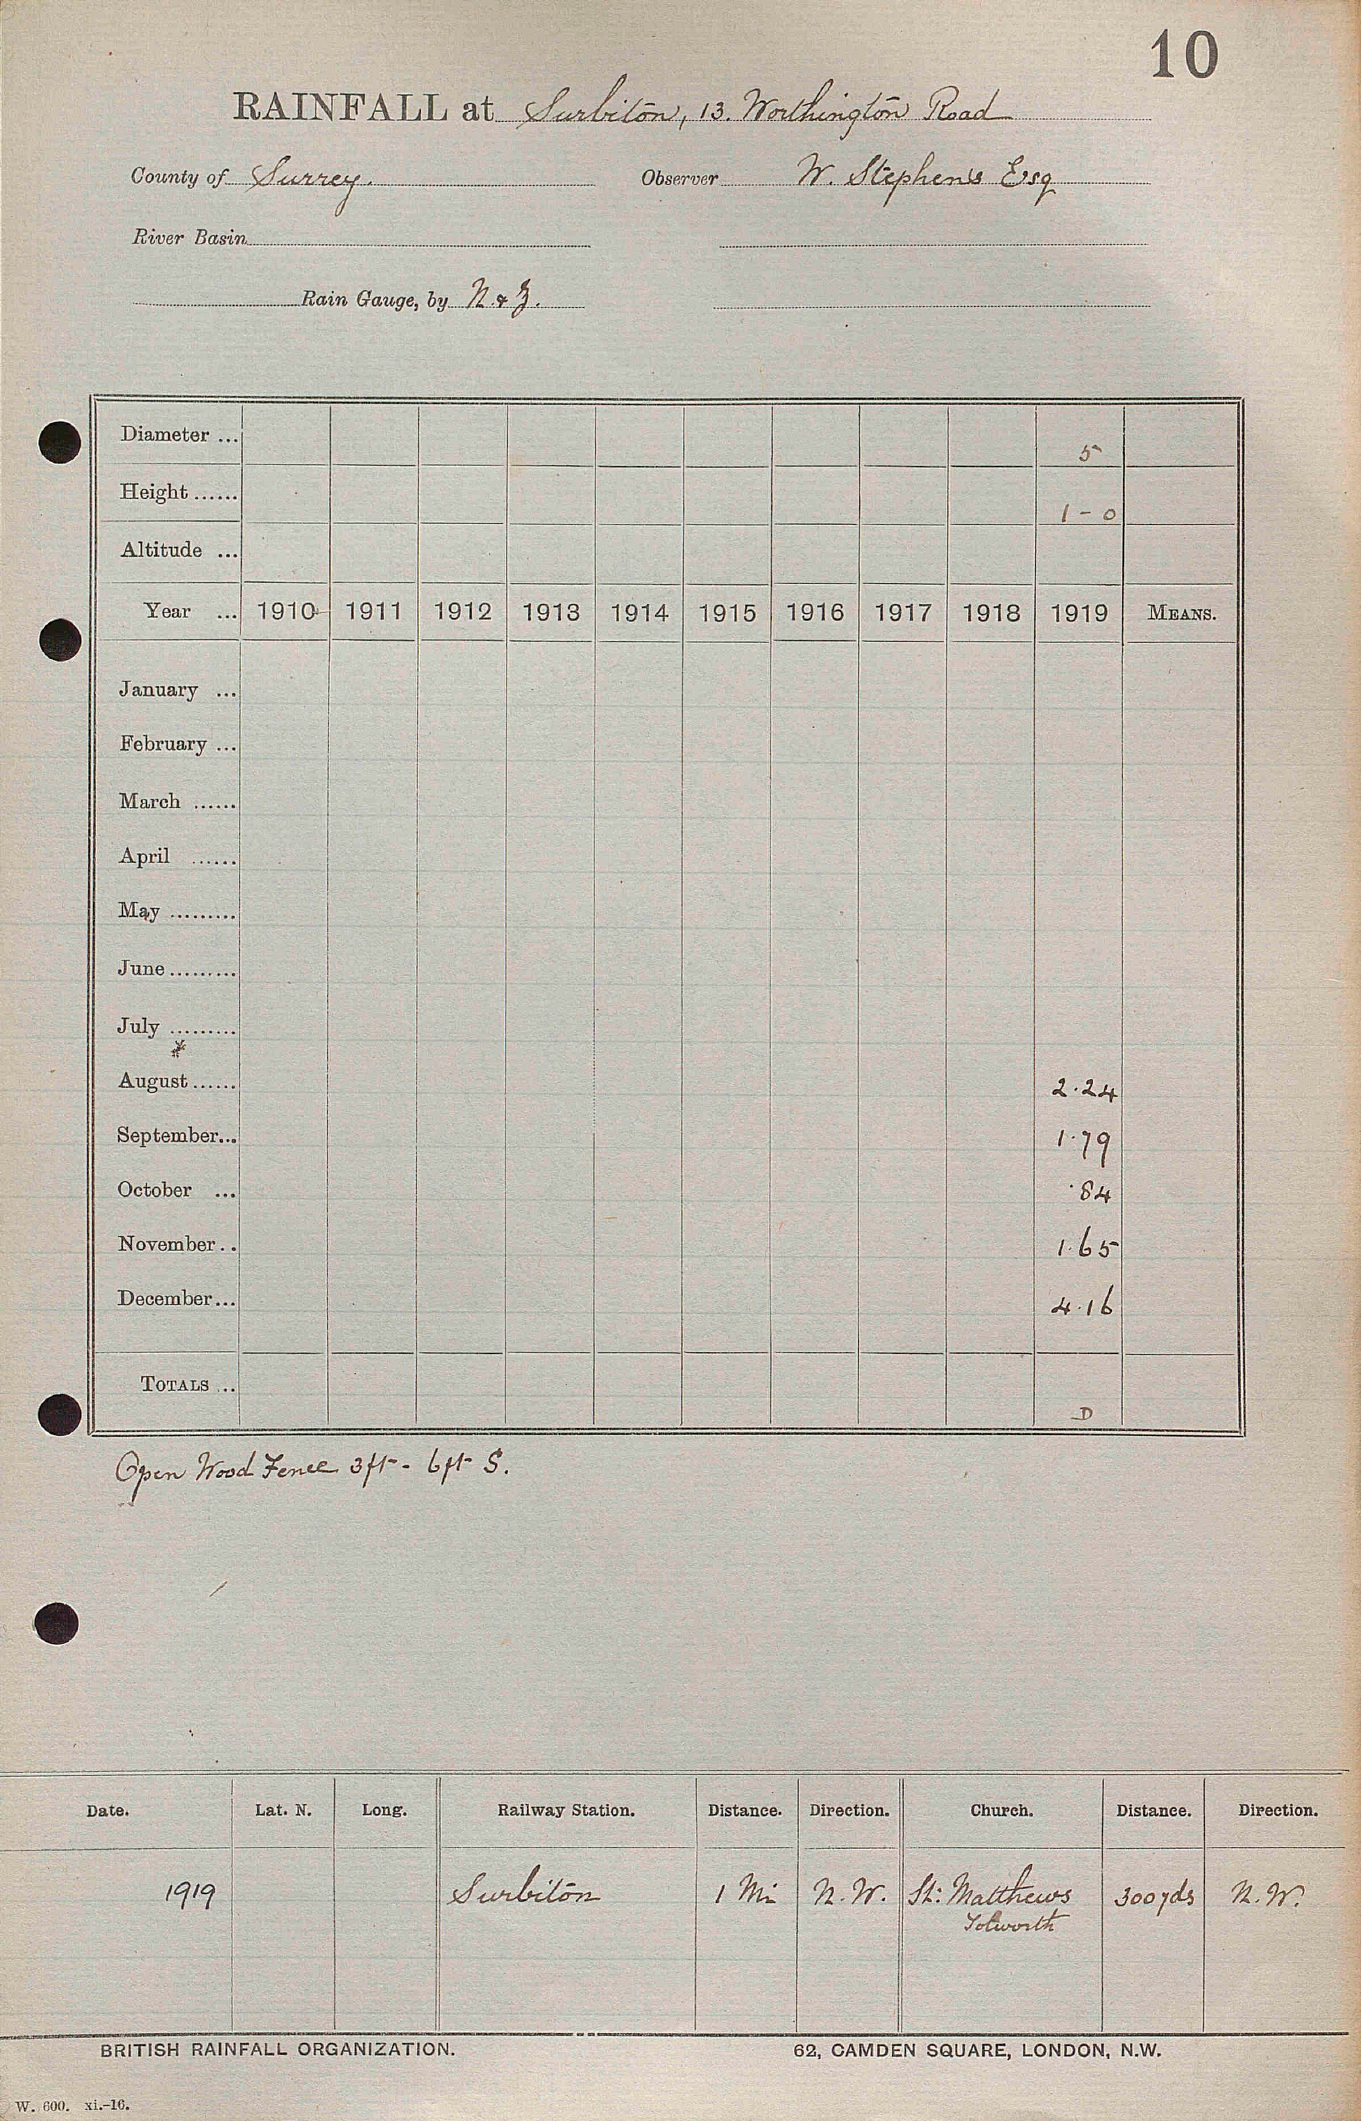 10
RAINFALL at Surbiton, 13. Worthington Road
County of Surrey. Observer W. Stephens Esq
River Basin
Rain Gauge, by N & Z.
Diameter ... 5
Height ...... 1 - 0
Altitude ...
Year ... 1910 1911 1912 1913 1914 1915 1916 1917 1918 1919 MEANS.
January ...
February ...
March ......
April ......
May .........
June .........
July .........
*
August ...... 2.24
September... 1.79
October ... .84
November .. 1.65
December... 4.16
TOTALS ...
D
Open Wood Fence 3ft - 6ft S.
Date. Lat. N. Long. Railway Station. Distance. Direction. Church. Distance. Direction.
1919 Surbiton 1 Mi N.W. St: Matthews 300yds N.W.
Tolworth
BRITISH RAINFALL ORGANIZATION. 62, CAMDEN SQUARE, LONDON, N.W.
W. 600. xi.-16.